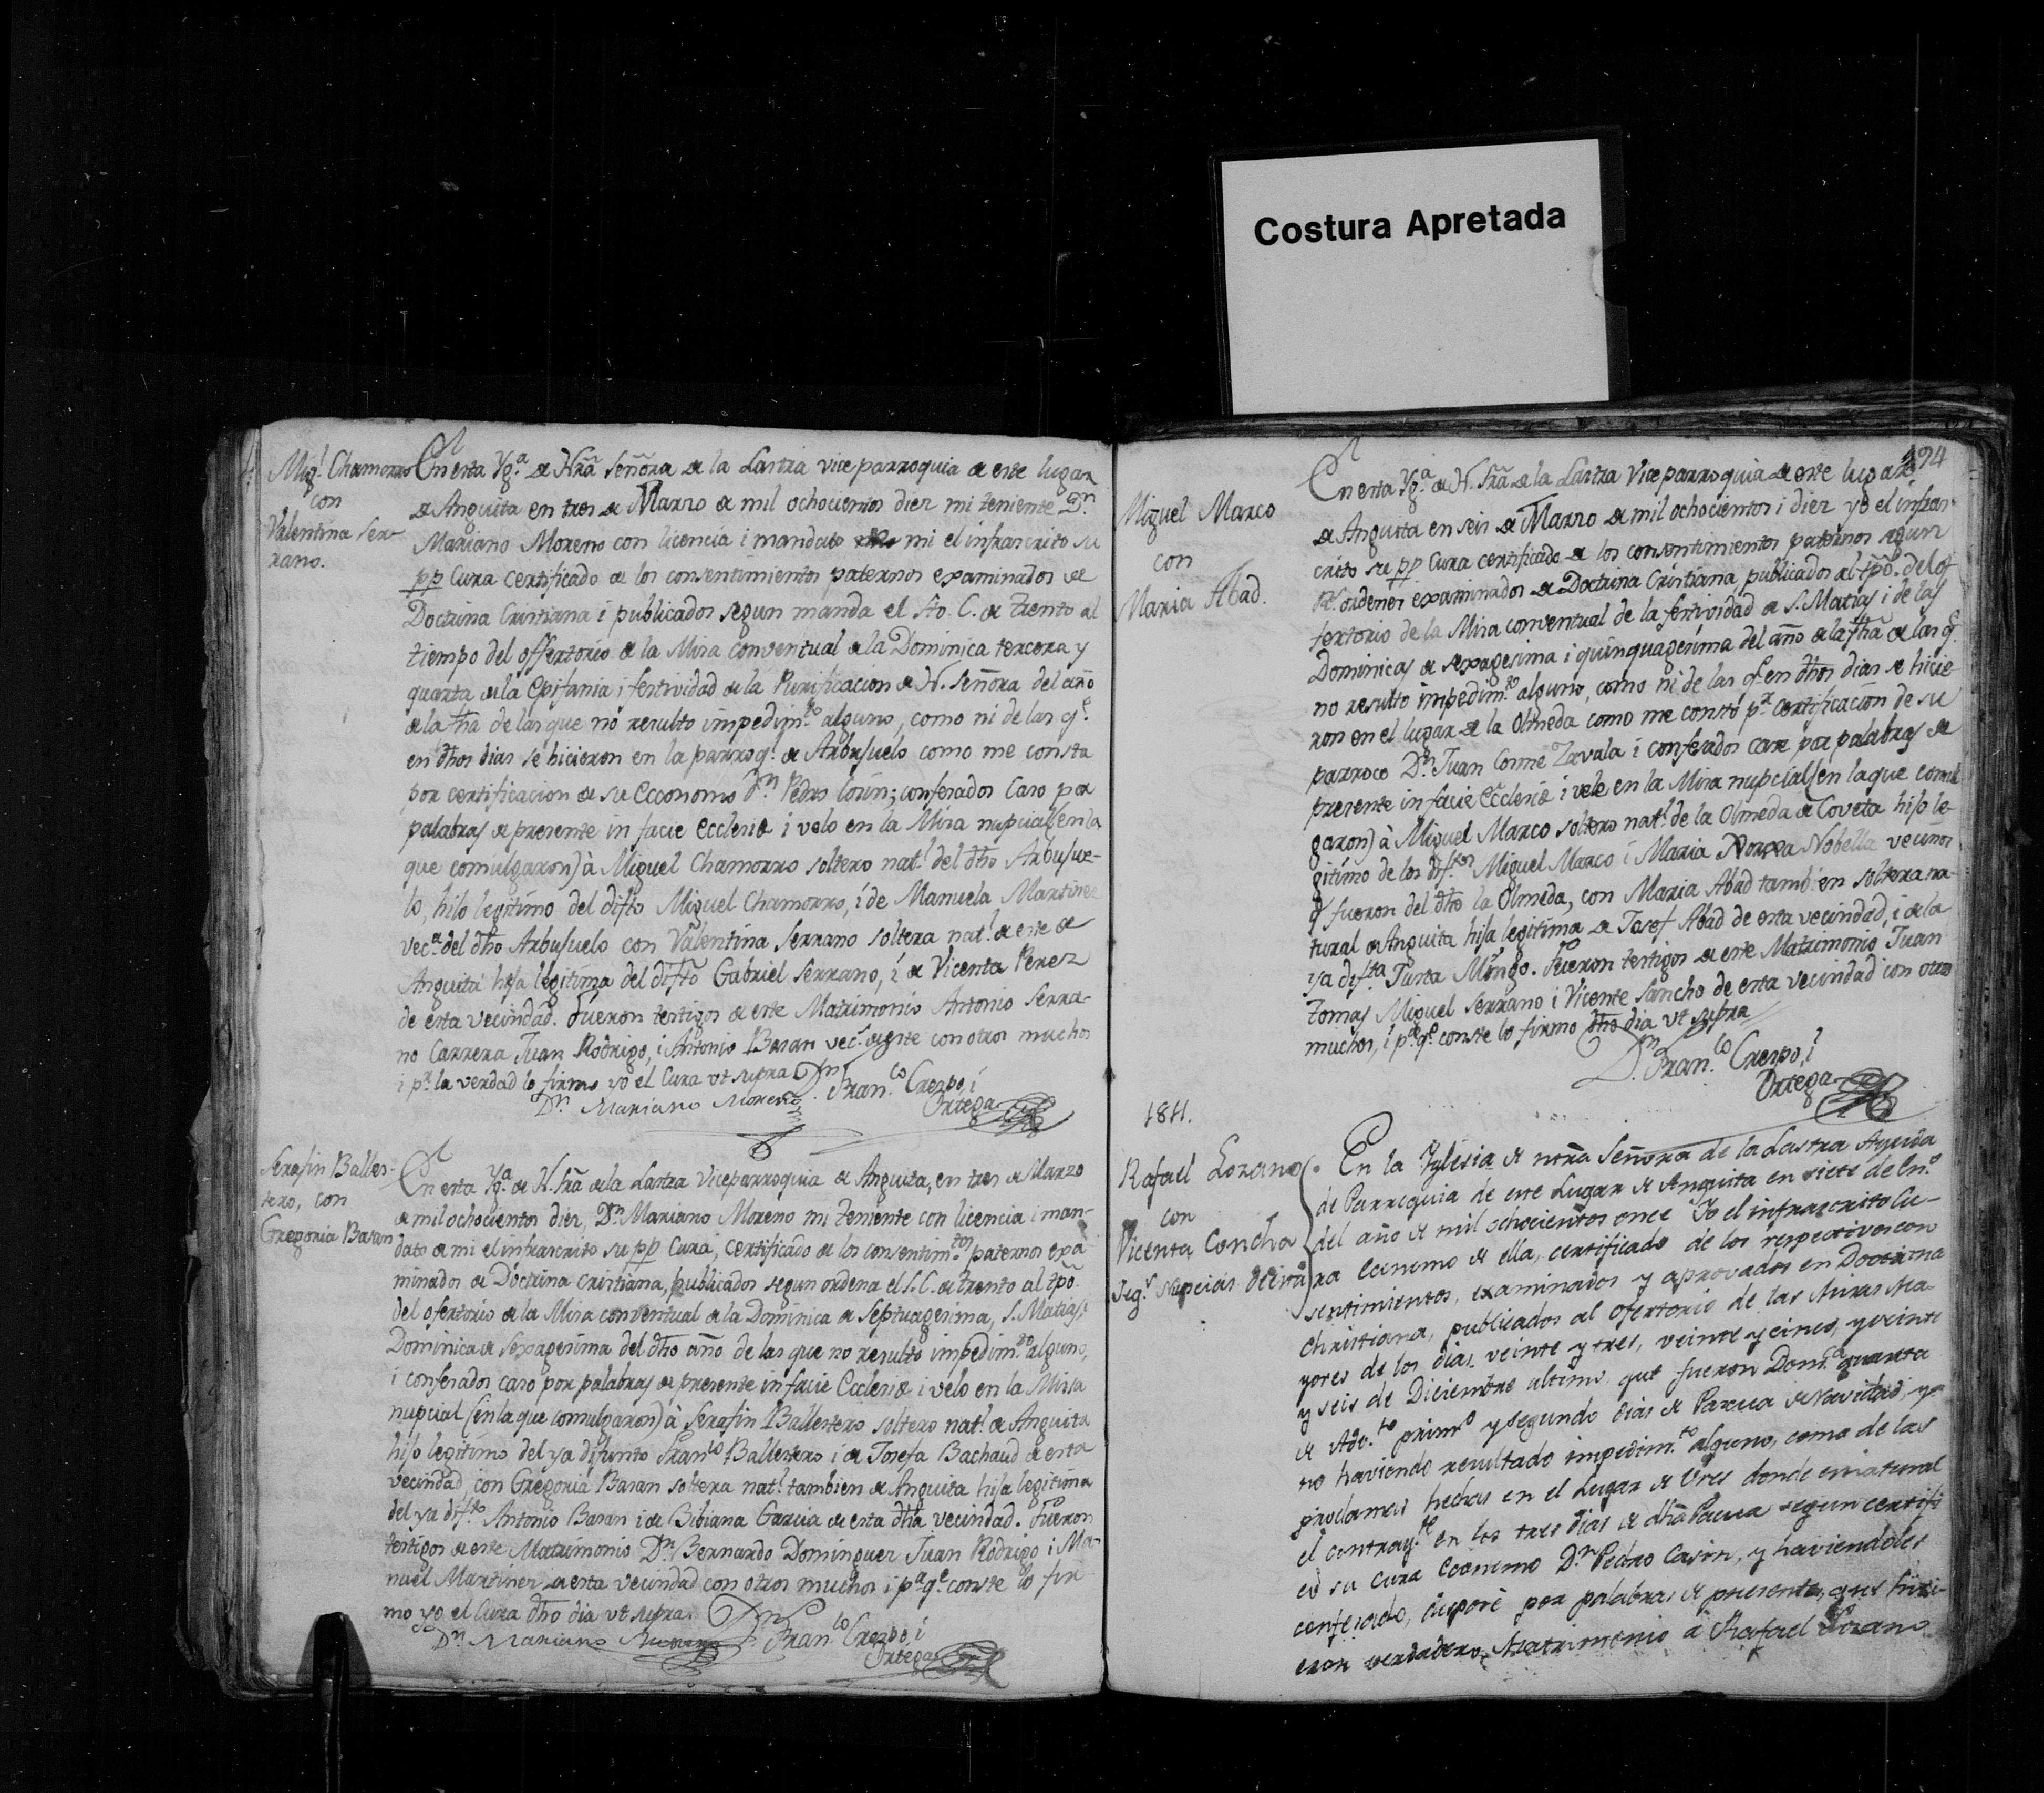 Costura Apretada
Mig.l Chamorro
con
Valentina Ser-
rano.
En esta Yg.a de Nrã Señora de la Lastra vice parroquia de este lugar
de Anguita en tres de Marzo de mil ochocientos diez mi teniente D.n
Mariano Moreno con licencia i mandato mi el infrascrito su
pp Cura certificado de los consentimientos paternos examinados de
Doctrina Cristiana i publicados segun manda el Sto. C. de Trento al
tiempo del offertorio de la Misa conventual de la Dominica tercera y
quarta de la Epifania i festividad de la Purificacion de N. Señora del año
de la fhã de las que no resulto impedim.to alguno, como ni de las q.e
en dhos dias se hicieron en la parroq.l de Arbujuelo como me consta
por certificacion de su Economo D.n Pedro ; confesados caso por
palabras de presente in facie Ecclesiæ i velo en la Misa nupcial (en la
que comulgaron) à Miguel Chamorro soltero nat.l del dho Arbujue-
lo, hijo legitimo del difto Miguel Chamorro, i de Manuela Martinez
vec.a del dho Arbujuelo con Valentina Serrano soltera nat.l de este de
Anguita hija legitima del difto Gabriel Serrano, i de Vicenta Perez
de esta vecindad. Fueron testigos de este Matrimonio Antonio Serra-
no Carrera Juan Rodrigo, i Antonio Basan vec.s de este con otros muchos
i p.r la verdad lo firmo yo el Cura vt supra
D.n Mariano Moreno D.n Fran.co Crespo, i
Ortega
Serafin Balles-
tero, con
Gregoria Basan
En esta Yg.a de N. Srã de la Lastra Viceparroquia de Anguita, en tres de Marzo
de mil ochocientos diez, D.n Mariano Moreno mi teniente con licencia i man-
dato de mi el infrascrito su pp Cura, certificado de los consentim.tos paternos exa-
minados de Doctrina cristiana, publicados segun ordena el S. C. de Trento al tpõ
del ofertorio de la Misa conventual de la Dominica de Septuagesima, S. Matias i
Dominica de Sexagesima del dho año de las que no resulto impedim.to alguno,
i confesados caso por palabras de presente in facie Ecclesiæ i velo en la Misa
nupcial (en la que comulgaron) à Serafin Ballestero soltero nat.l de Anguita
hijo legitimo del ya difunto Fran.co Ballestero i de Josefa Bachaud de esta
vecindad, con Gregoria Basan soltera nat.l tambien de Anguita hija legitima
del ya dif.to Antonio Basan i de Bibiana Garcia de esta dha vecindad. Fueron
testigos de este Matrimonio D.n Bernardo Dominguez Juan Rodrigo i Ma-
nuel Martinez de esta vecindad con otros muchos i p.a q.e conste lo fir-
mo yo el Cura dho dia vt supra.
D.n Mariano Moreno D.n Fran.co Crespo, i
Ortega
194
Miguel Marco
con
Maria Abad.
En esta Yg.a de N. Srã de la Lastra Vice parroquia de este lugar
de Anguita en seis de Marzo de mil ochocientos i diez yo el infras-
crito su pp Cura certificado de los consentimientos paternos segun
R.s ordenes examinados de Doctrina Cristiana publicados al tpõ. del of-
fertorio de la Misa conventual de la festividad de S. Matias i de las
Dominicas de sexagesima i quinquagesima del año de la fhã de las q.e
no resulto impedim.to alguno, como ni de las q en dhos dias se hicie-
ron en el lugar de la Olmeda como me constó p.r certificacion de su
parroco D.n Juan Cosme Zavala i confesados case por palabras de
presente in facie Ecclesiæ i vele en la Misa nupcial (en la que comul-
garon) à Miguel Marco soltero nat.l de la Olmeda de Coveta hijo le-
gitimo de los dif.tos Miguel Marco i Maria Nobella vecinos
q fueron del dho la Olmeda, con Maria Abad tambien soltera na-
tural de Anguita hija legitima de Josef Abad de esta vecindad, i de la
ya dif.ta Justa Mingo. Fueron testigos de este Matrimonio Juan
Tomas Miguel Serrano i Vicente Sancho de esta vecindad con otros
muchos, i p.a q.e conste lo firmo dho dia vt supra
D.n Fran.co Crespo, i
Ortega
1811.
Rafael Lozano
con
Vicenta Concha
Seg.s Nupcias
En la Yglesia de ntra Señora de la Lastra Ayuda
de Parroquia de este Lugar de Anguita en siete de En.o
del año de mil ochocientos once Yo el infrascrito Cu-
ra Economo de ella, certificado de los respectivos con
sentimientos, examinados y aprovados en Doctrina
Christiana, publicados al ofertorio de las Misas Ma-
yores de los dias veinte y tres, veinte y cinco, y veinte
y seis de Diciembre ultimo, que fueron Dom.ca quarta
de Adv.to prim.o y segundo dias de Pascua de Navidad, y
no haviendo resultado impedim.to alguno, como de las
proclamas hechas en el Lugar de Ures donde es natural
el contray.te en los tres dias de dha Pascua segun certifi
có su Cura Economo D.n Pedro Casin, y haviendoles
confesado, despose por palabras de presente, que hici-
eron verdadero Matrimonio à Rafael Lozano